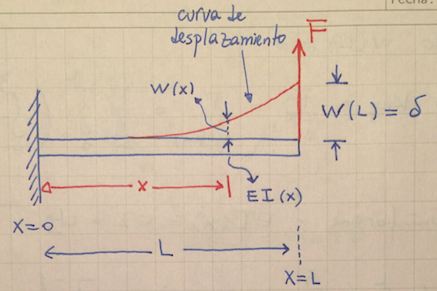 Fecha:
curva de
desplazamiento
F
W(x)
W(L) = δ
x
EI(x)
X=0
L
X=L